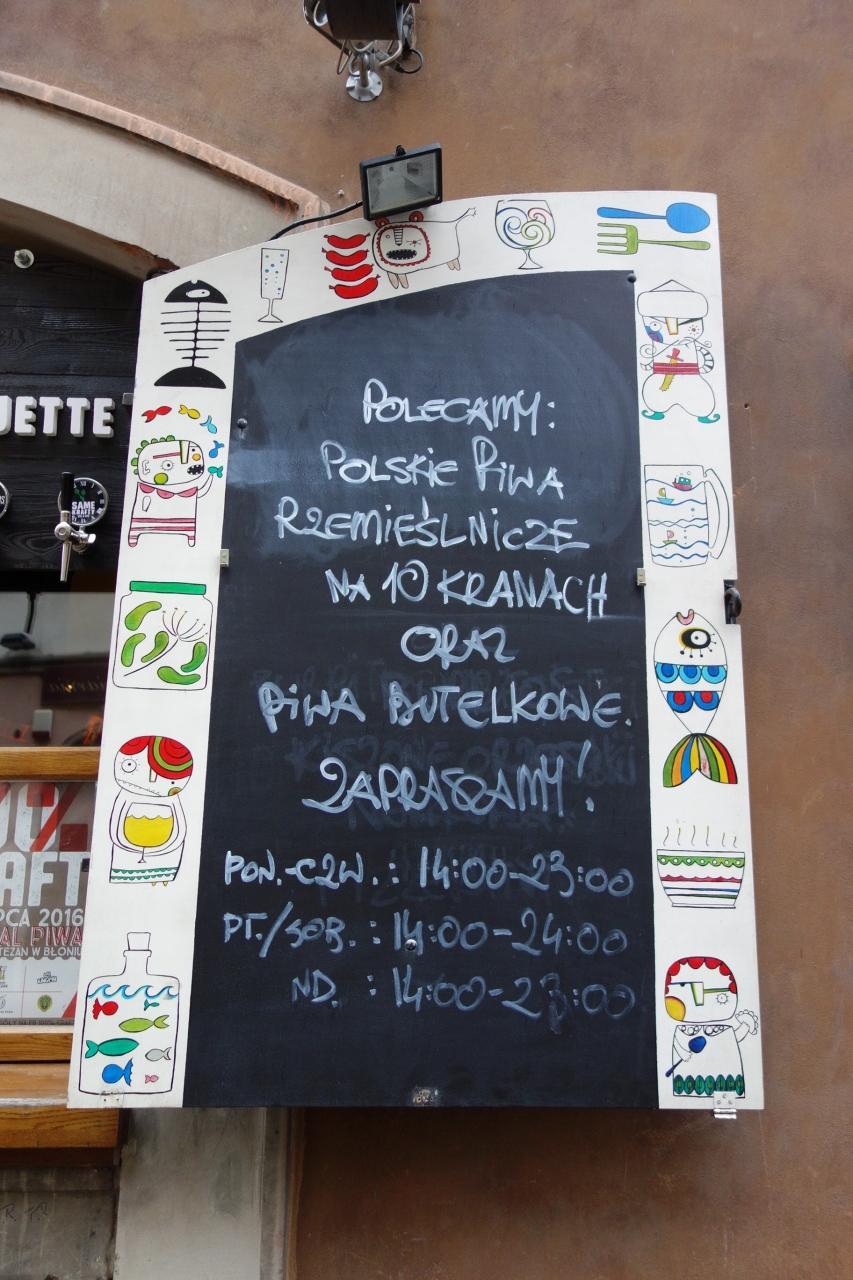 POLECAMY:
POLSKIE PIWA
RZEMIEŚLNICZE
NA 10 KRANACH
ORAZ
PIWA BUTELKOWE.
ZAPRASZAMY!
PON.-CZW.: 14:00-23:00
PT./SOB.: 14:00-24:00
ND.: 14:00-23:00
UETTE
SAME
KRAFTY
AFT
PCA 2016
AL PIWA
TEZAN W BŁONIU